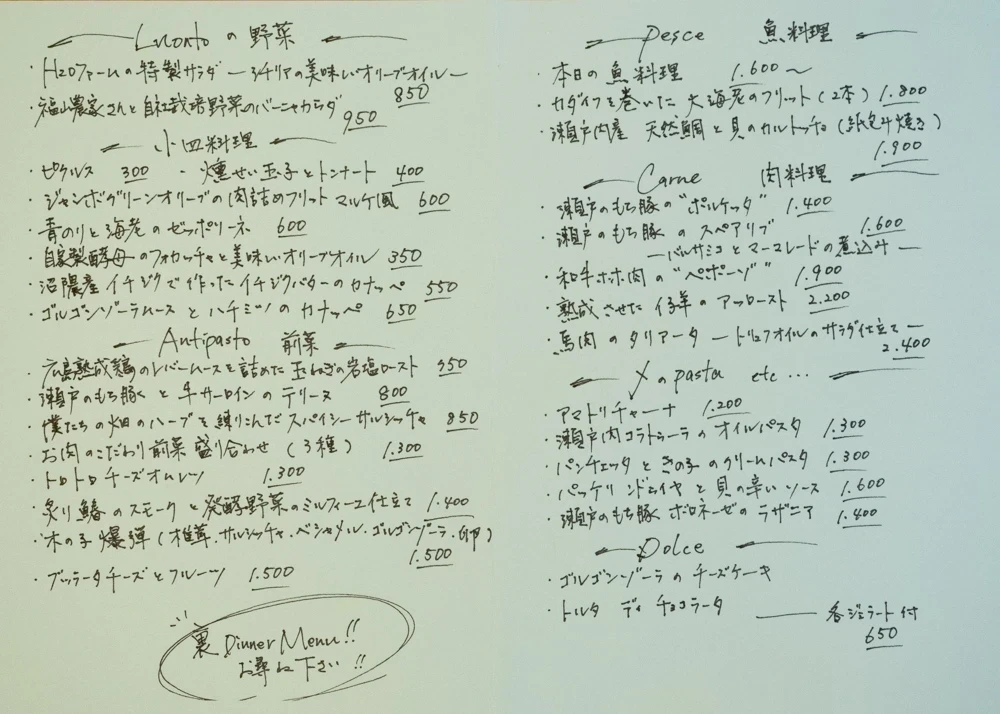 Luonto の 野菜
・H2Oファームの特製サラダ ー シチリアの美味しいオリーブオイル ー
850
・福山農家さんと自社栽培野菜のバーニャカウダ
950
小皿料理
・ピクルス 300 ・燻せい玉子とトンナート 400
・ジャンボグリーンオリーブの肉詰めフリット マルケ風 600
・青のりと海老のゼッポリーネ 600
・自家製酵母のフォカッチャと美味しいオリーブオイル 350
・沼隈産イチジクで作ったイチジクバターのカナッペ 550
・ゴルゴンゾーラムースとハチミツのカナッペ 650
Antipasto 前菜
・広島熟成鶏のレバームースを詰めた玉ねぎの岩塩ロースト 950
・瀬戸のもち豚と牛サーロインのテリーヌ 800
・僕たちの畑のハーブを練りこんだスパイシーサルシッチャ 850
・お肉のこだわり前菜盛り合わせ (3種) 1.300
・トロトロチーズオムレツ 1.300
・炙り鰆のスモークと発酵野菜のミルフィーユ仕立て 1.400
・木の子爆弾(椎茸.サルシッチャ.ベシャメル.ゴルゴンゾーラ.卵)
1.500
・ブッラータチーズとフルーツ 1.500
裏 Dinner Menu!!
お尋ね下さい!!
Pesce 魚料理
・本日の魚料理 1.600〜
・カダイフを巻いた大海老のフリット(2本) 1.800
・瀬戸内産 天然鯛と貝のカルトッチョ(紙包み焼き)
1.900
Carne 肉料理
・瀬戸のもち豚の“ポルケッタ” 1.400
・瀬戸のもち豚のスペアリブ 1.600
ーバルサミコとマーマレードの煮込みー
・和牛ホホ肉の“ペポーゾ” 1.900
・熟成させた仔羊のアッロースト 2.200
・馬肉のタリアータ ートリュフオイルのサラダ仕立てー
2.400
〆のpasta etc...
・アマトリチャーナ 1.200
・瀬戸内コラトゥーラのオイルパスタ 1.300
・パンチェッタときの子のクリームパスタ 1.300
・パッケリ ンドゥイヤと貝の辛いソース 1.600
・瀬戸のもち豚 ボロネーゼのラザニア 1.400
Dolce
・ゴルゴンゾーラのチーズケーキ
・トルタ ディ チョコラータ ー 各ジェラート付
650